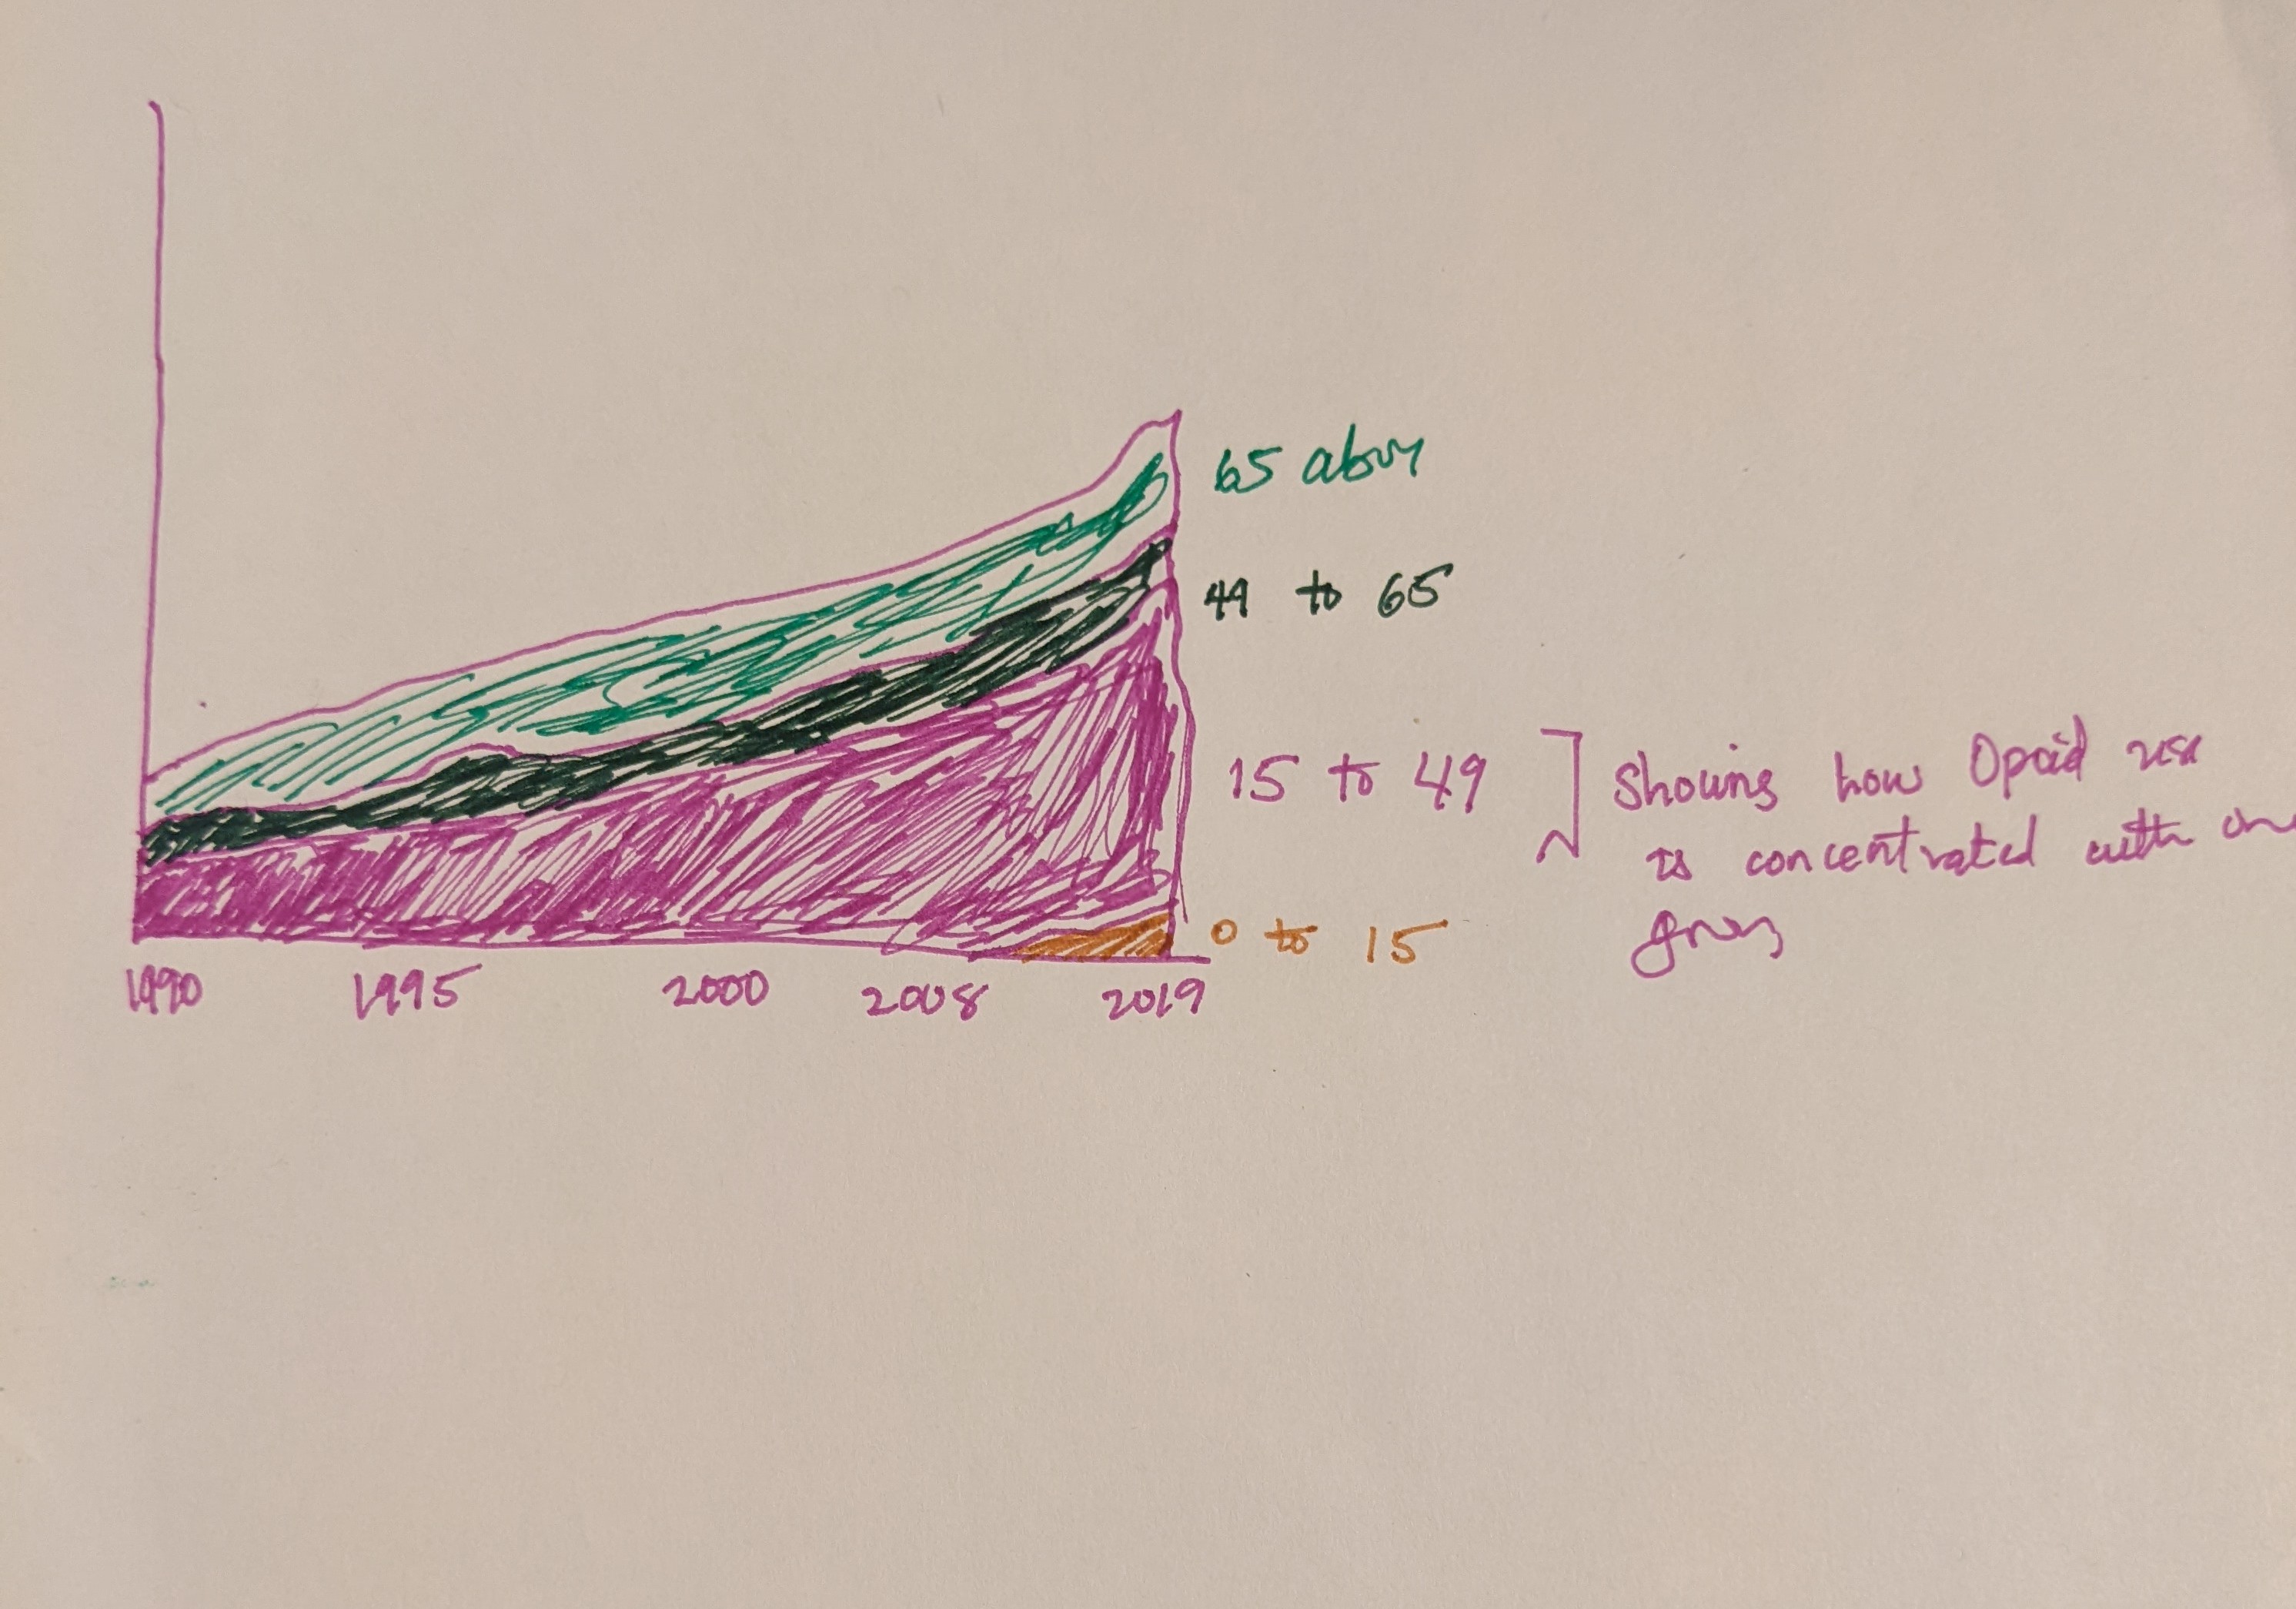 65 above
49 to 65
15 to 49
Showing how Opoid use
is concentrated with one
group
0 to 15
1990 1995 2000 2008 2019